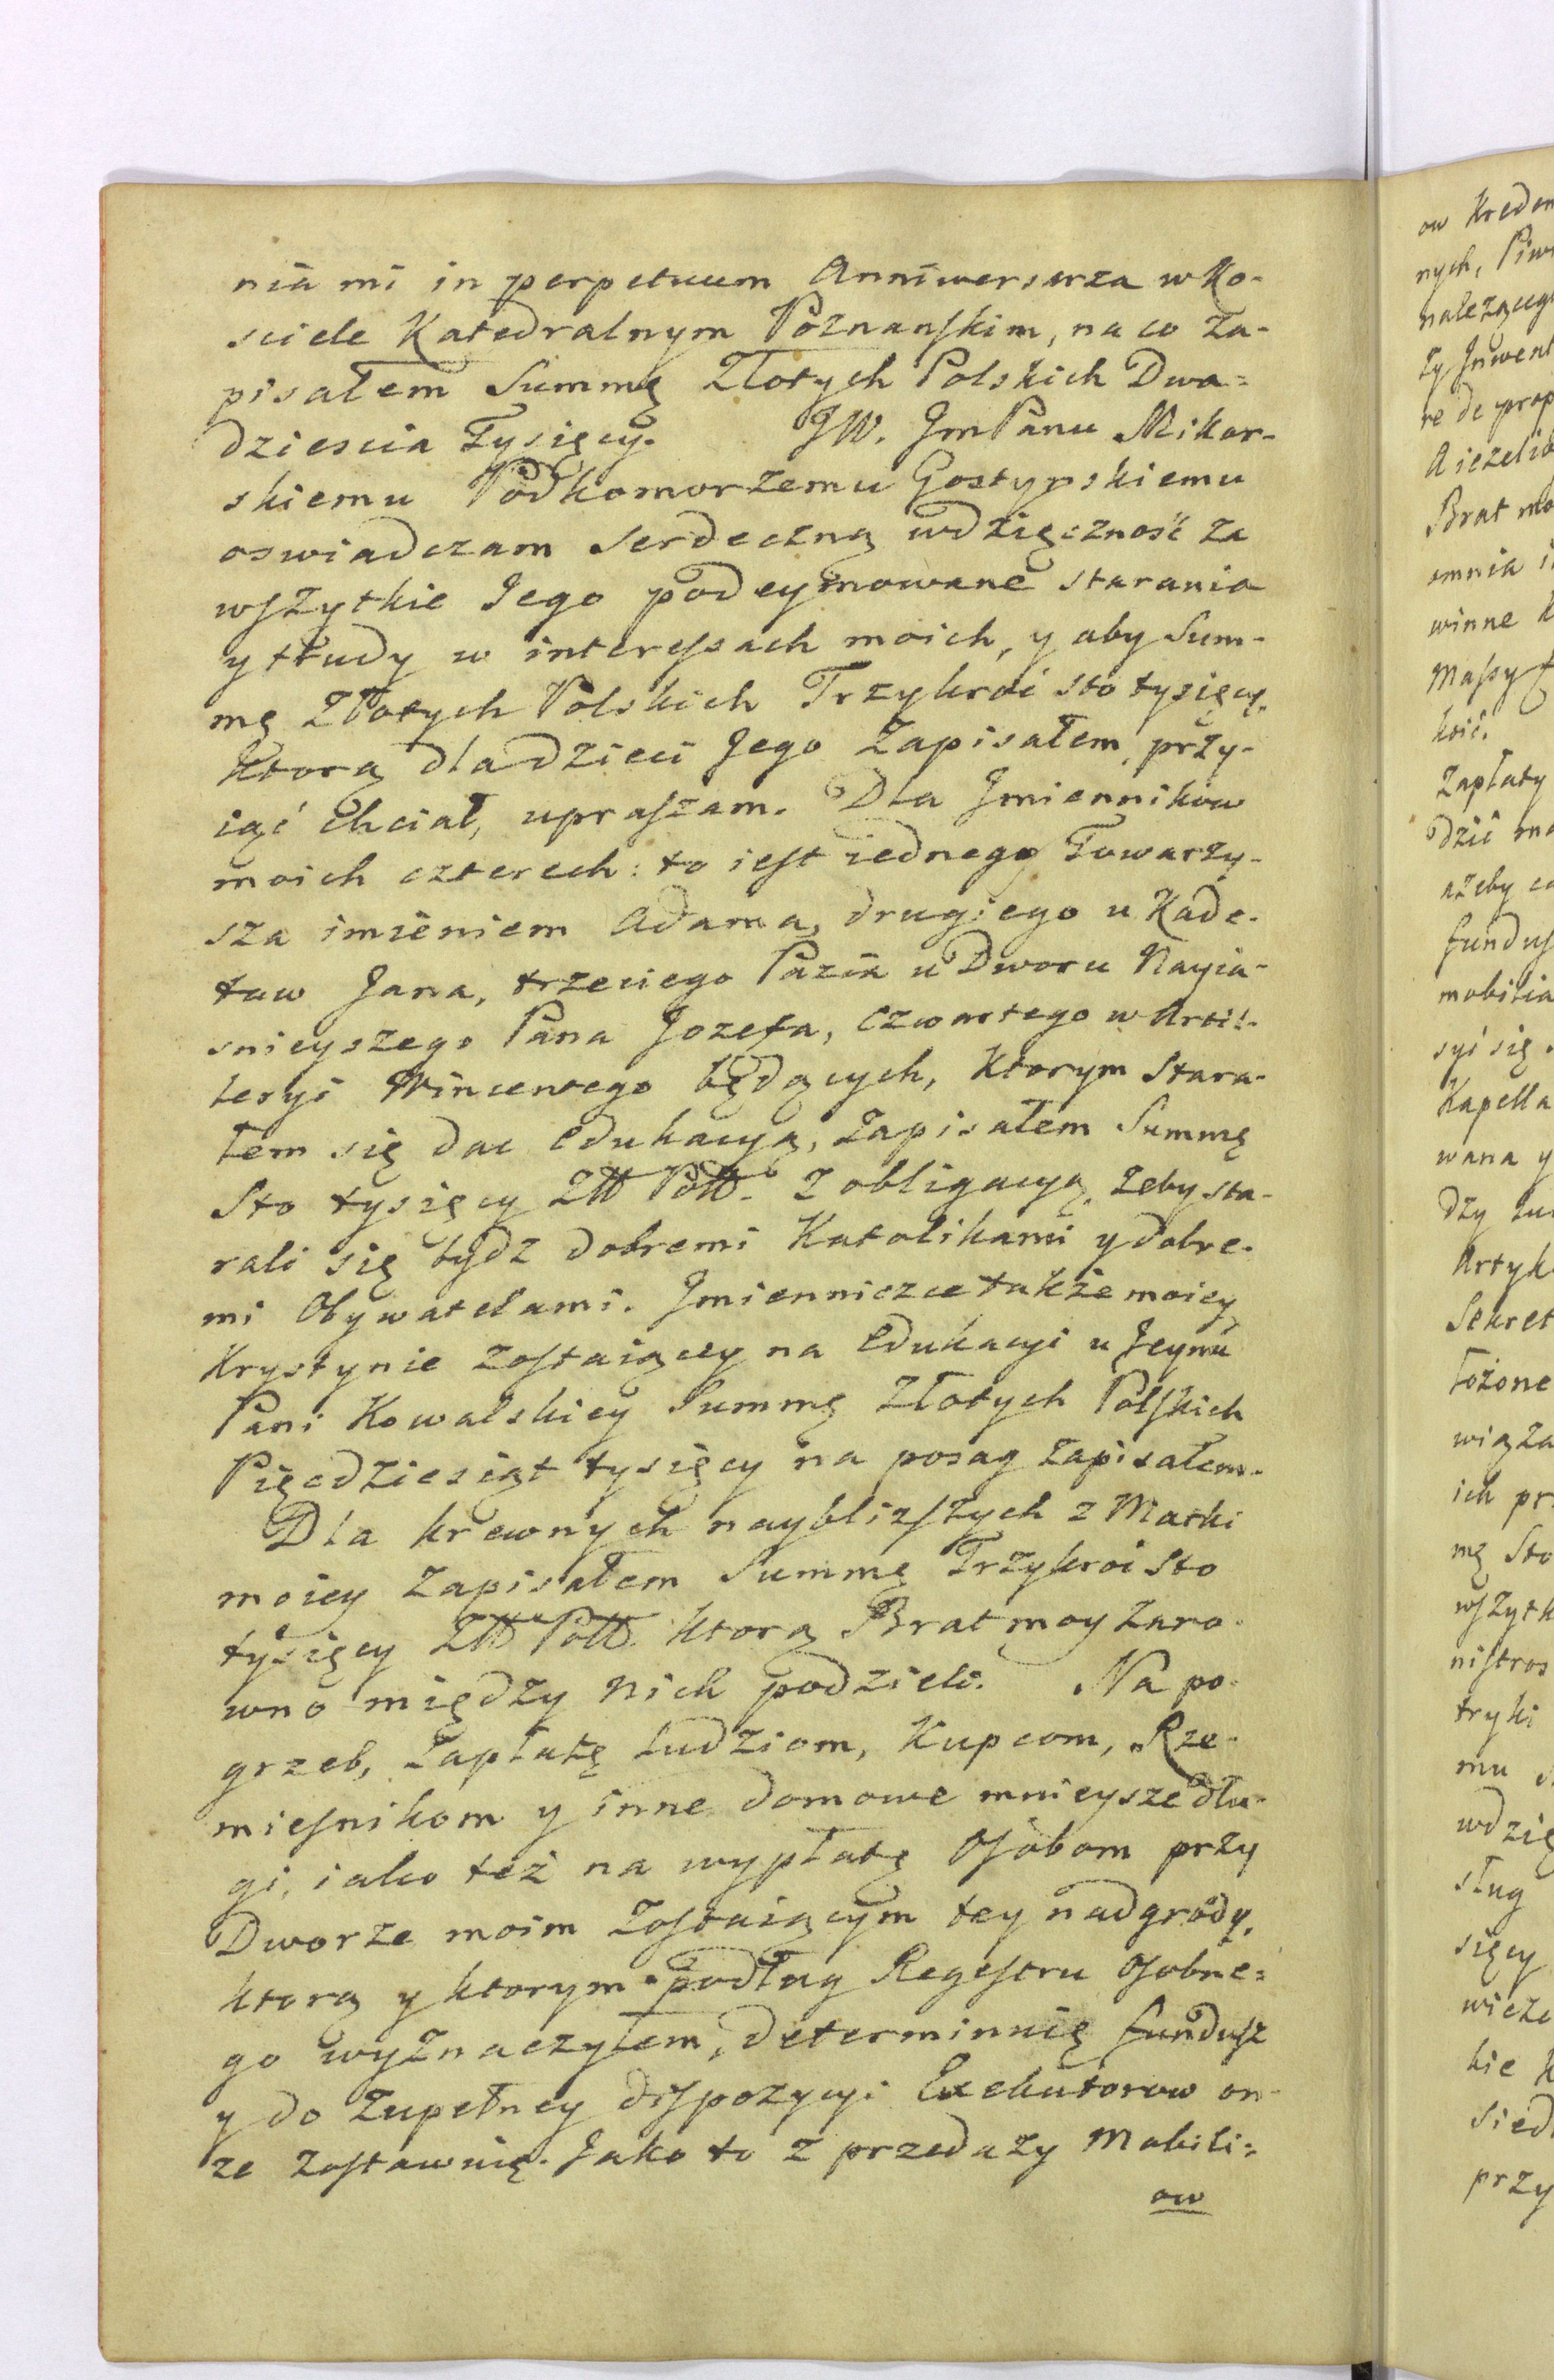 nia mi in perpetuum Anniwersarza w Ko-
sciele Katedralnym Poznanskim, na co za-
pisałem Summę Złotych Polskich Dwa=
dziescia Tysięcy. JW. JmPanu Mikor-
skiemu Podkomorzemu Gostynskiemu
oswiadczam serdeczną wdzięcznosć za
wszytkie Jego podeymowane starania
y trudy w interessach moich, y aby Sum-
mę Złotych Polskich Trzykroć sto tysięcy,
ktorą dla dzieci Jego Zapisałem, przy-
iąć chciał, upraszam. Dla Jmiennikow
moich czterech: to iest iednego Towarzy-
sza imieniem Adama, drugiego u Kade-
tow Jana, trzeciego Pazia u Dworu Nayia-
snieyszego Pana Jozefa, czwartego w Artil-
leryi Wincentego będących, ktorym stara-
łem się dac edukacyą, zapisałem Summę
Sto tysięcy Złł Poll. z obligacyą, żeby sta-
rali się bydz dobremi Katolikami y dobre-
mi Obywatelami. Jmienniczce także moiey
Krystynie zostaiącey na Edukacyi u Jeymć
Pani Kowalskiey Summę Złotych Polskich
Pięcdziesiąt tysięcy na posag zapisałem.
Dla krewnych nayblizszych z Matki
moiey zapisałem Summę Trzykroć sto
tysięcy Złł Poll. ktorą Brat moy zaro-
wno między nich podzieli. Na po-
grzeb, zapłatę ludziom, Kupcom, Rze-
miesnikom y inne domowe mnieysze dłu-
gi, iako też na wypłatę Osobom przy
Dworze moim zostaiącym tey nadgrody,
ktorą y ktorym podług Regestru osobne=
go wyznaczyłem, determinuię fundusz
y do zupełney dispozycyi Exekutorow on-
ze zostawuię. Jako to z przedaży Mobili=
ow
ow Kreden
nych, Piw
należąceg
ty Jnwent
re de prop
A ieżelib
Brat mo
omnia i
winne k
Massy
kcić.
Zapłaty
dzić mo
ażeby co
fundus
mobilia
syć się.
Kapella
wana y
dzy lu
Artyk
Sekret
łożone
wiąza
ich pr
mę Sto
wszytk
nistros
tryki
mu
wdzię
sług
sięcy
wicze
kie k
sied
przy